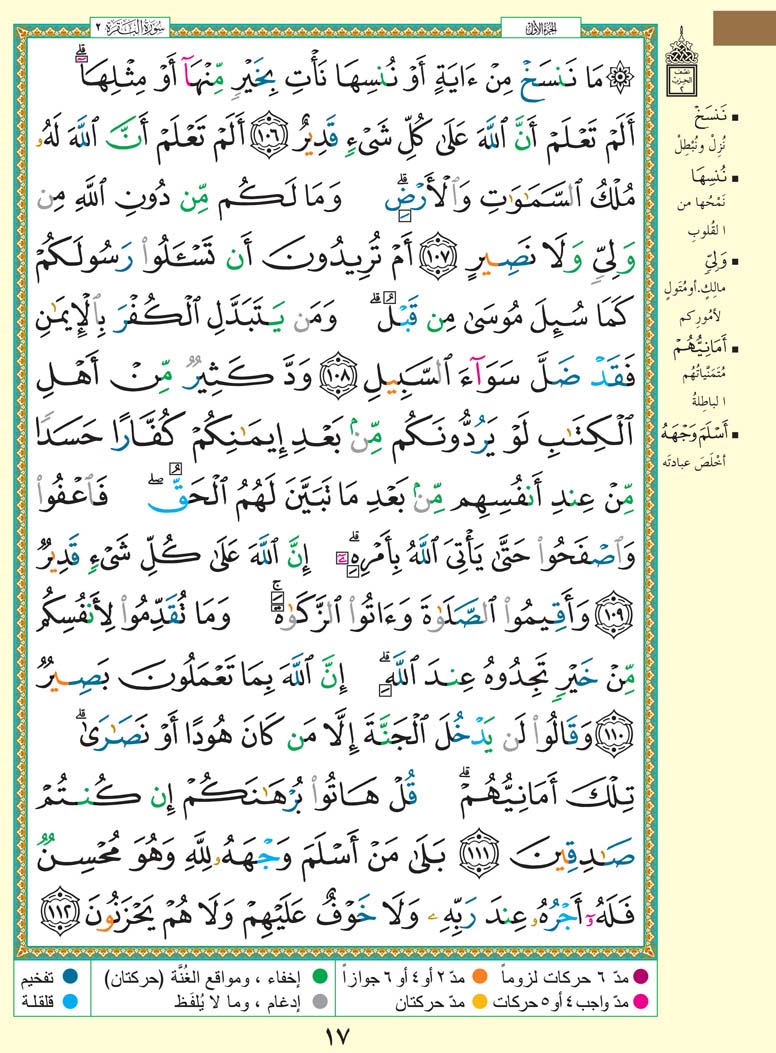 سُورَةُ البَقَرَة ٢
الجُزءُ الأوّل
۞ مَا نَنسَخْ مِنْ ءَايَةٍ أَوْ نُنسِهَا نَأْتِ بِخَيْرٍ مِّنْهَآ أَوْ مِثْلِهَآ ۗ
أَلَمْ تَعْلَمْ أَنَّ ٱللَّهَ عَلَىٰ كُلِّ شَىْءٍ قَدِيرٌ ﴿١٠٦﴾ أَلَمْ تَعْلَمْ أَنَّ ٱللَّهَ لَهُۥ
مُلْكُ ٱلسَّمَٰوَٰتِ وَٱلْأَرْضِ ۗ وَمَا لَكُم مِّن دُونِ ٱللَّهِ مِن
وَلِىٍّ وَلَا نَصِيرٍ ﴿١٠٧﴾ أَمْ تُرِيدُونَ أَن تَسْـَٔلُوا۟ رَسُولَكُمْ
كَمَا سُئِلَ مُوسَىٰ مِن قَبْلُ ۗ وَمَن يَتَبَدَّلِ ٱلْكُفْرَ بِٱلْإِيمَٰنِ
فَقَدْ ضَلَّ سَوَآءَ ٱلسَّبِيلِ ﴿١٠٨﴾ وَدَّ كَثِيرٌ مِّنْ أَهْلِ
ٱلْكِتَٰبِ لَوْ يَرُدُّونَكُم مِّنۢ بَعْدِ إِيمَٰنِكُمْ كُفَّارًا حَسَدًا
مِّنْ عِندِ أَنفُسِهِم مِّنۢ بَعْدِ مَا تَبَيَّنَ لَهُمُ ٱلْحَقُّ ۖ فَٱعْفُوا۟
وَٱصْفَحُوا۟ حَتَّىٰ يَأْتِىَ ٱللَّهُ بِأَمْرِهِۦٓ ۗ إِنَّ ٱللَّهَ عَلَىٰ كُلِّ شَىْءٍ قَدِيرٌ
﴿١٠٩﴾ وَأَقِيمُوا۟ ٱلصَّلَوٰةَ وَءَاتُوا۟ ٱلزَّكَوٰةَ ۚ وَمَا تُقَدِّمُوا۟ لِأَنفُسِكُم
مِّنْ خَيْرٍ تَجِدُوهُ عِندَ ٱللَّهِ ۗ إِنَّ ٱللَّهَ بِمَا تَعْمَلُونَ بَصِيرٌ
﴿١١٠﴾ وَقَالُوا۟ لَن يَدْخُلَ ٱلْجَنَّةَ إِلَّا مَن كَانَ هُودًا أَوْ نَصَٰرَىٰ ۗ
تِلْكَ أَمَانِيُّهُمْ ۗ قُلْ هَاتُوا۟ بُرْهَٰنَكُمْ إِن كُنتُمْ
صَٰدِقِينَ ﴿١١١﴾ بَلَىٰ مَنْ أَسْلَمَ وَجْهَهُۥ لِلَّهِ وَهُوَ مُحْسِنٌ
فَلَهُۥٓ أَجْرُهُۥ عِندَ رَبِّهِۦ وَلَا خَوْفٌ عَلَيْهِمْ وَلَا هُمْ يَحْزَنُونَ ﴿١١٢﴾
نصف
الحزب
٢
▪ نَنسَخْ
نُزِلْ ونُبْطِلْ
▪ نُنسِهَا
نَمْحُها من
القُلوبِ
▪ وَلِىٍّ
مالِكٍ. أو مُتَولٍ
لأمُورِكم
▪ أَمَانِيُّهُمْ
مُتَمَنَّياتُهُم
الباطِلةُ
▪ أَسْلَمَ وَجْهَهُ
أخْلَصَ عبادتَه
مدّ ٦ حركات لزوماً
مدّ ٢ أو ٤ أو ٦ جوازاً
إخفاء ، ومواقع الغُنَّة (حركتان)
تفخيم
مدّ واجب ٤ أو ٥ حركات
مدّ حركتان
إدغام ، وما لا يُلفَظ
قلقلة
١٧